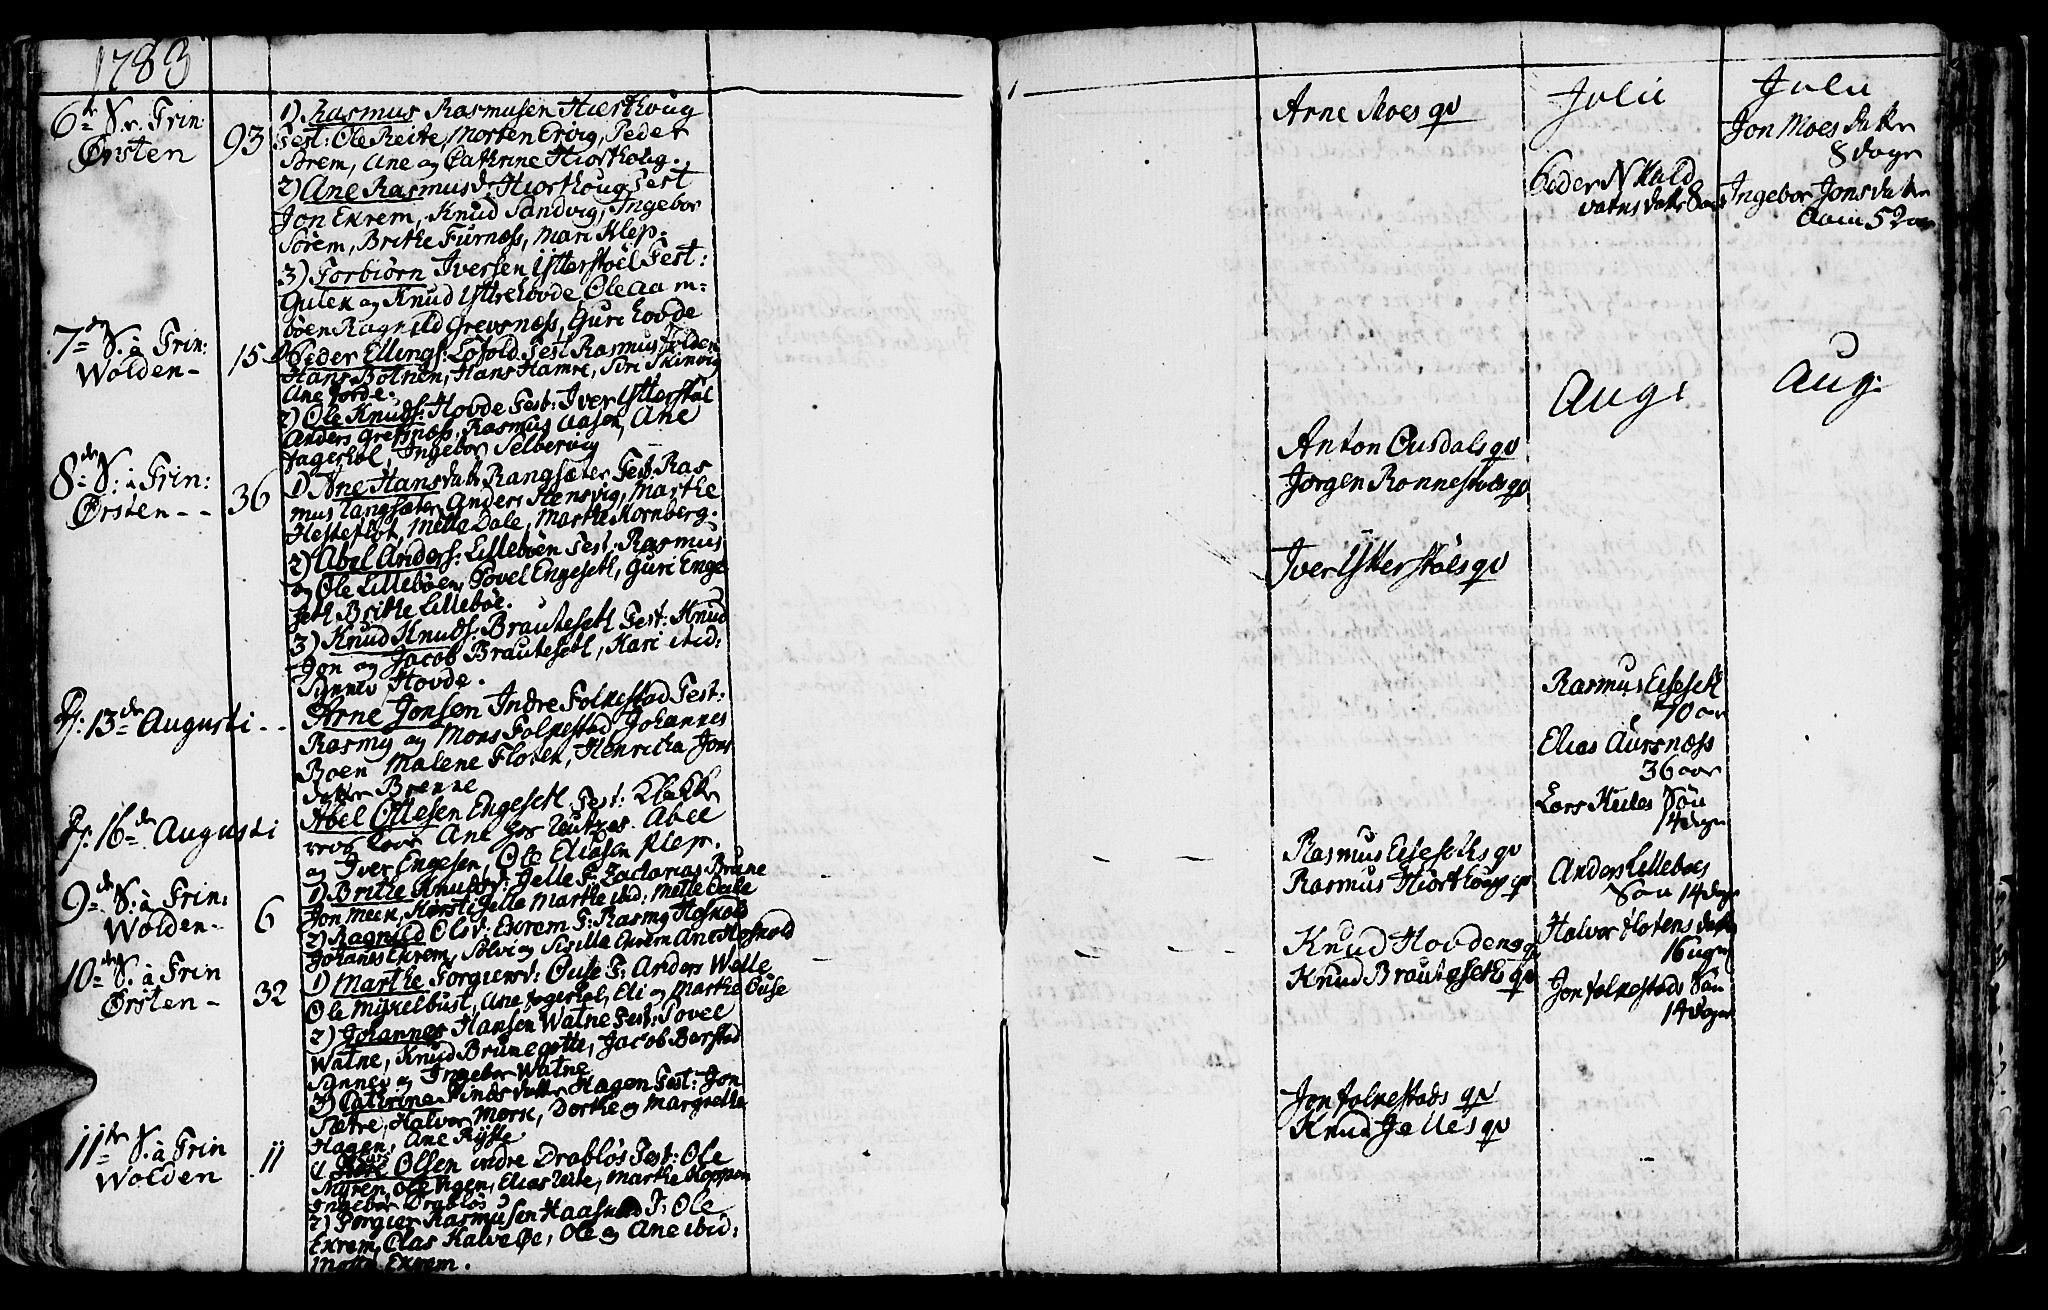 1783
6te S. e. Trin:
Ørsten
93
1) Rasmus Rasmusen Hiorthoug
Test: Ole Reite, Morten Ervig, Peder
Brem, Ane og Cathrine Hiorthoug.
2) Ane Rasmusd: Hiorthoug Test
Jon Exrem, Knud Sandvig, Ingebor
Sørem, Brithe Furnæss, Mari Klep.
3) Torbiørn Iversen Ytterstøel Test:
Gulek og Knud Ytrehovde Ole Aam-
bøen Ragnild Grevsnæss, Guri Hovde
7de S. a Trin:
Wolden -
15
1) Peder Ellings: Lofold Test Rasmus Folden
Hans Botnem, Hans Hamre, Siri Skinvig
Ane Jorde.
2) Ole Knuds: Hovde Test: Iver Ytterstøl
Anders Grefsnæss, Rasmus Aasen, Ane
Fagerhol, Ingebor Selbervig
8de S: a Trin:
Ørsten - -
36
1) Ane Hansdatr Rangsæter Test: Ras
mus Langsæter Anders Stensvig, Marthe
Hesteflot, Mette Dale, Marthe Kornberg.
2) Abel Anders: Lillebøen Test: Rasmus
og Ole Lillebøen, Povel Engeseth, Guri Enge
seth Brithe Lillebøe.
3) Knud Knuds: Brauteseth Test: Knud
Jon og Jacob Brauteseth, Kari ibid:
Synnev Hovde.
13de Augusti - -
Arne Jonsen Indre Folkestad Test:
Rasmus og Mons Folkestad Johannes
Boen Malene Floten, Henricha Jons
datter Brenne
16de Augusti
Abel Ottesen Engeseth Test: Klokke
Ane Abel
og Iver Engesen, Ole Eliasen Klep.
9de S: a Trin:
Wolden -
6
1) Brithe Knudsd: Jelle T: Zacharias Brune
Jon Meek, Kirsti Jelle Marthe ibid; Mette Dale
2) Ragnild Olsd: Exrem T: Rasmus Hofsold
Johanes Exrem, Solvi og Sisille Exrem Ane Hofsold
10de S. a Trin
Ørsten -
32
1) Marthe Torgiersd: Ouse T: Anders Welle
Ole Myxelbust, Ane Fagerhol, Eli og Marthe Ouse
2) Johannes Hansen Watne Test: Povel
Watne, Knud Brunegotte, Jacob Barstad
Synnev og Ingebor Watne
3) Catrine Findsdatter Hagen Test: Jon
Sætre, Halvor Mork, Dorthe og Margrethe
Hagen, Ane Ryste
11te S. a Trin
Wolden
11
1) Olsen indre Drabløs Test: Ole
Myren, Ole Vigen, Elias Velte, Marthe Koppen
Ingebor Drabløs
2) Torgier Rasmusen Haasund T: Ole
Exrem, Olas Kalveøe, Ole og Ane ibid:
Exrem.
Arne Moes qv
Anton Ousdals qv
Jørgen Rønnestøls qv
Iver Ytterstøls qv
Rasmus Eseseths qv
Rasmus Hiorthougs qv
Knud Hovdens qv
Knud Brauteseths qv
Jon Folkestads qv
Knud Jelles qv
Julii
Peder N Kald
vatns datr 8
Aug:
Rasmus Eseseth
70 aar
Elias Aursnæss
36 aar
Lars Søn
14 dage
Anders Lillebøes
Søn 14 dage
Halvor Flotens datr
16 uger
Jon Folkestads Søn
14 dage
Julii
Jon Moes datter
8 dage
Ingebor Jonsdatter
Aam 52 aar
Aug: